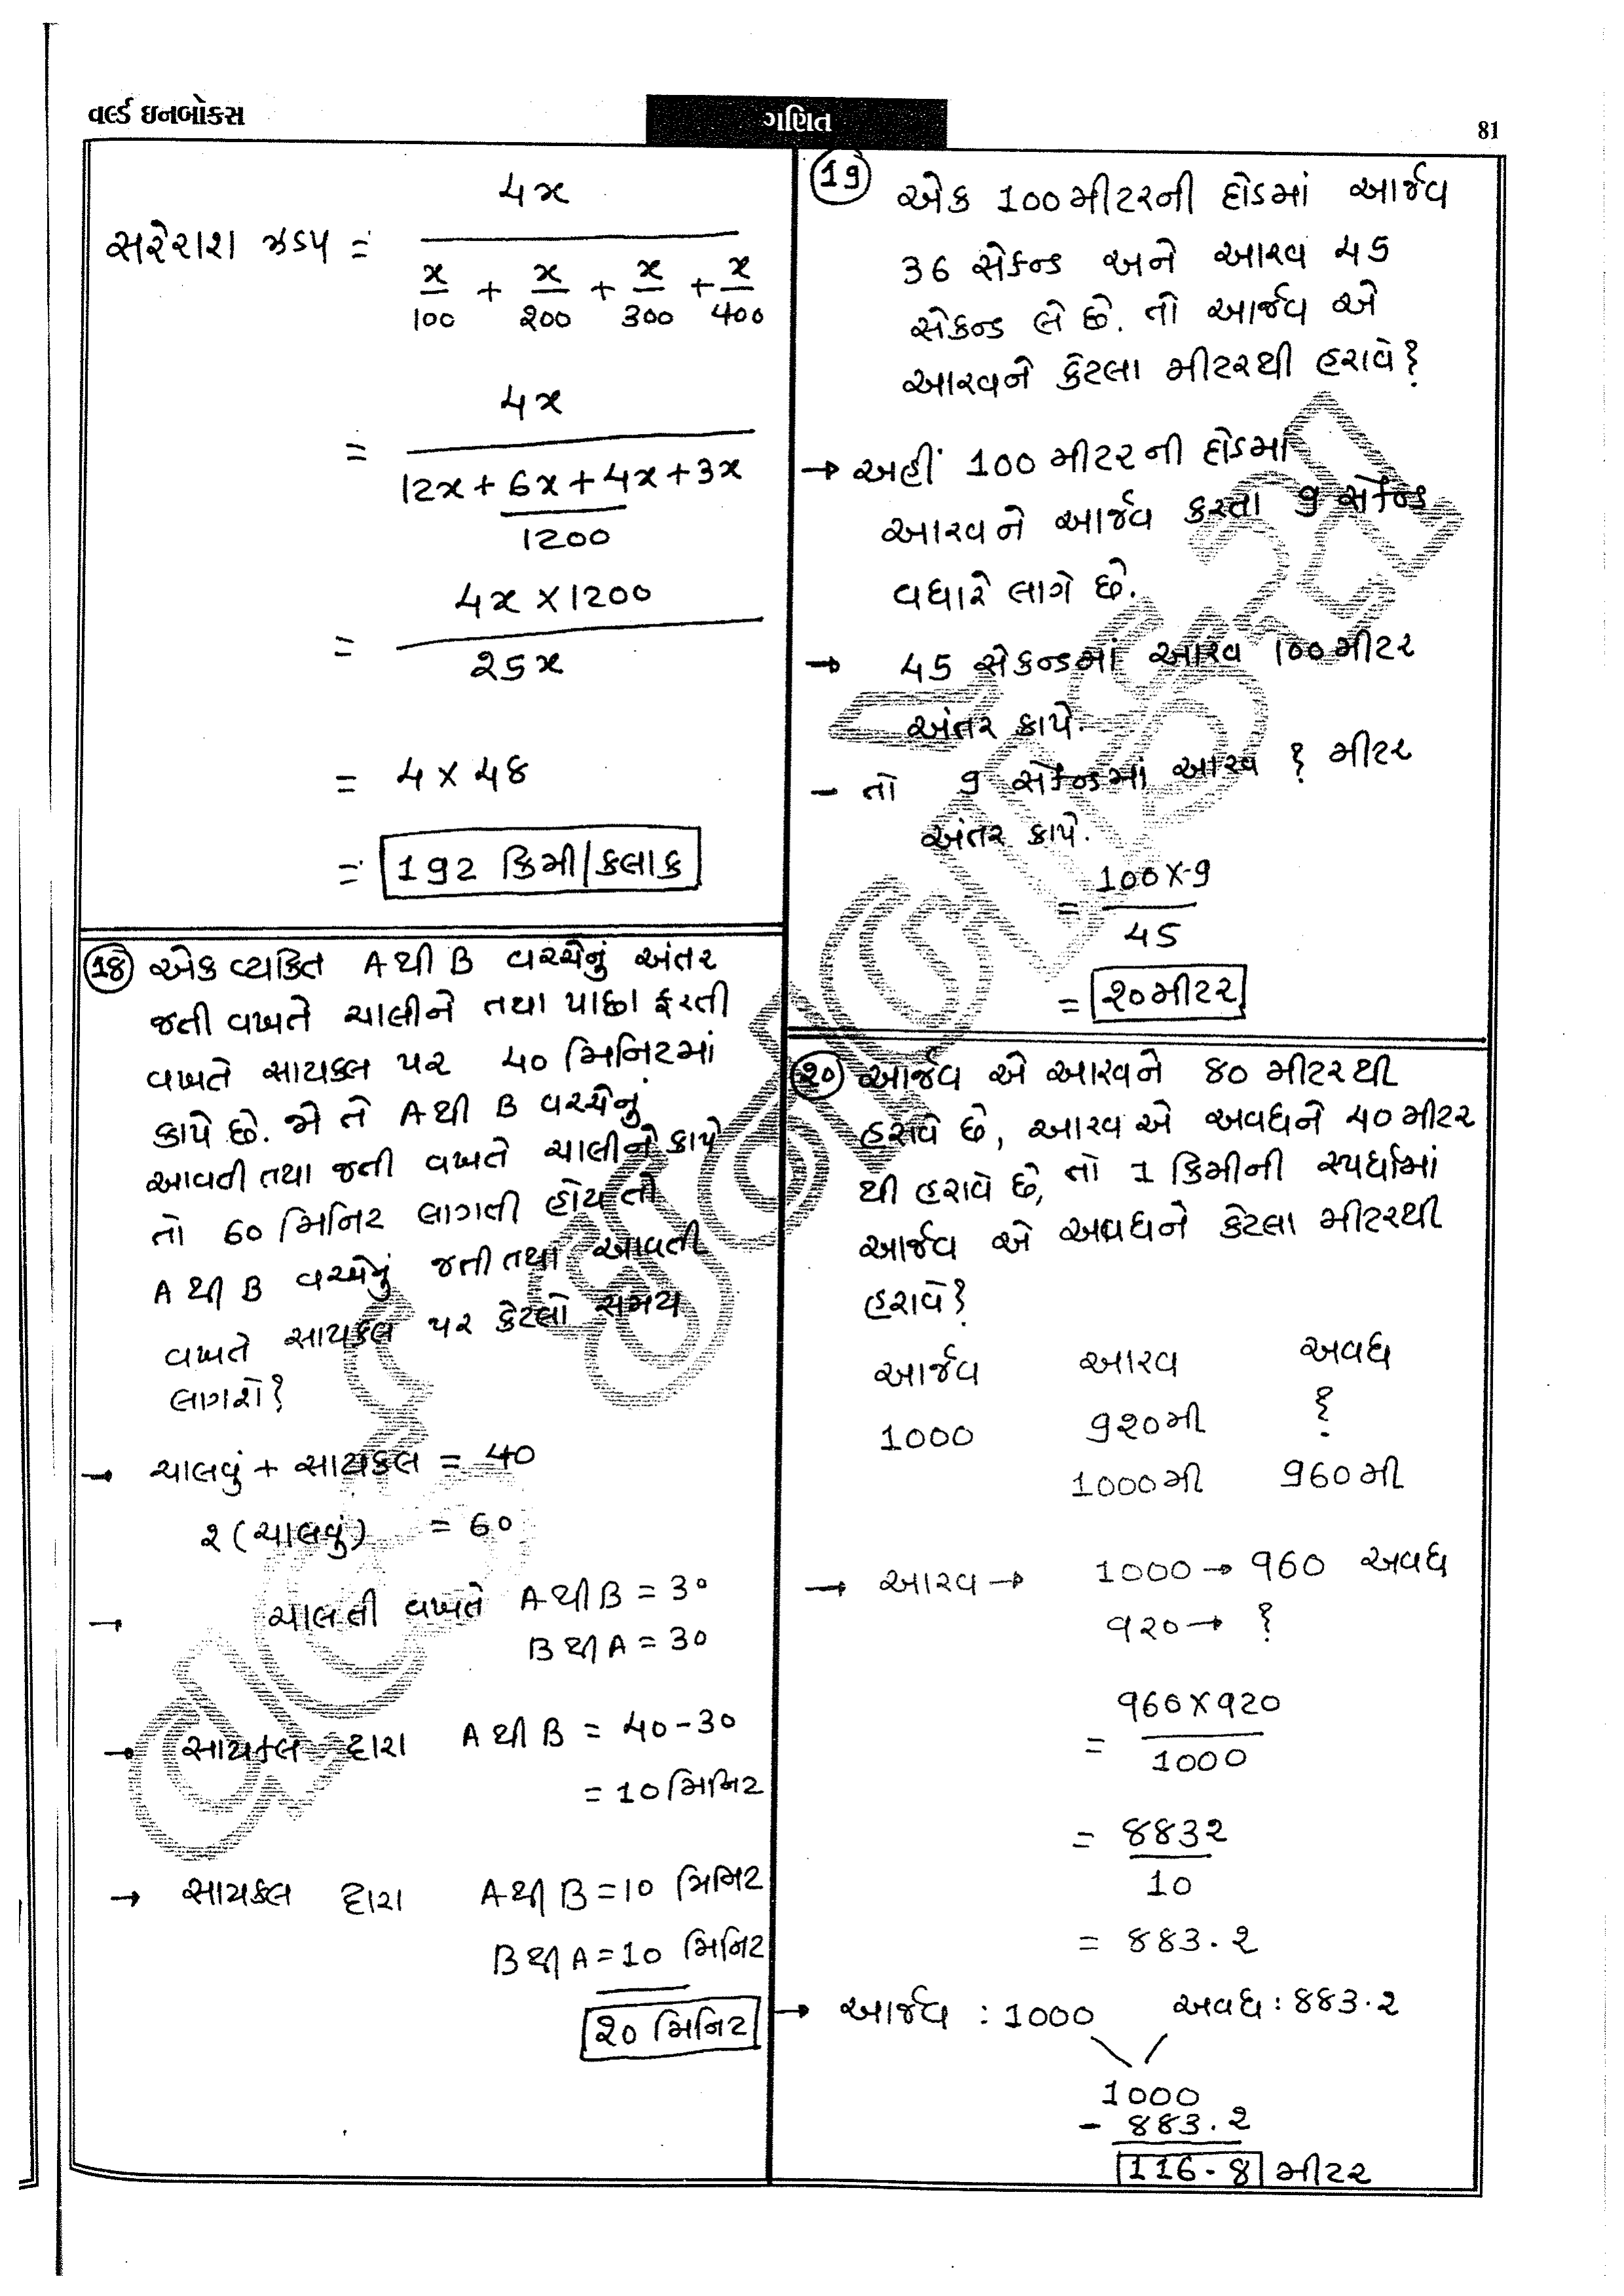 વર્લ્ડ ઇનબોક્સ
ગણિત
81
4x
સરેરાશ ઝડપ =
x/100 + x/200 + x/300 + x/400
4x
=
12x + 6x + 4x + 3x
1200
4x × 1200
=
25x
= 4 × 48
= 192 કિમી/કલાક
(18) એક વ્યક્તિ A થી B વચ્ચેનું અંતર
જતી વખતે ચાલીને તથા પાછા ફરતી
વખતે સાયકલ પર 40 મિનિટમાં
કાપે છે. જો તે A થી B વચ્ચેનું
આવતી તથા જતી વખતે ચાલીને કાપે
તો 60 મિનિટ લાગતી હોય તો
A થી B વચ્ચેનું જતી તથા આવતી
વખતે સાયકલ પર કેટલો સમય
લાગશે?
→ ચાલવું + સાયકલ = 40
૨ (ચાલવું) = 60
→ ચાલતી વખતે A થી B = 30
B થી A = 30
→ સાયકલ દ્વારા A થી B = 40-30
= 10 મિનિટ
→ સાયકલ દ્વારા A થી B = 10 મિનિટ
B થી A = 10 મિનિટ
૨0 મિનિટ
(19) એક 100 મીટરની દોડમાં આર્જવ
36 સેકન્ડ અને આરવ 45
સેકન્ડ લે છે. તો આર્જવ એ
આરવને કેટલા મીટરથી હરાવે?
→ અહીં 100 મીટરની દોડમાં
આરવને આર્જવ કરતા 9 સેકન્ડ
વધારે લાગે છે.
→ 45 સેકન્ડમાં આરવ 100 મીટર
અંતર કાપે.
- તો 9 સેકન્ડમાં આરવ ? મીટર
અંતર કાપે.
100 × 9
=
45
= ૨0 મીટર
(૨0) આર્જવ એ આરવને 80 મીટરથી
હરાવે છે, આરવ એ અવધને 40 મીટર
થી હરાવે છે, તો 1 કિમીની સ્પર્ધામાં
આર્જવ એ અવધને કેટલા મીટરથી
હરાવે?
આર્જવ આરવ અવધ
1000 9૨0 મી ?
1000 મી 960 મી
→ આરવ → 1000 → 960 અવધ
9૨0 → ?
960 × 920
=
1000
= 883૨
10
= 883.૨
→ આર્જવ : 1000 અવધ : 883.૨
1000
- 883.૨
116.8 મીટર